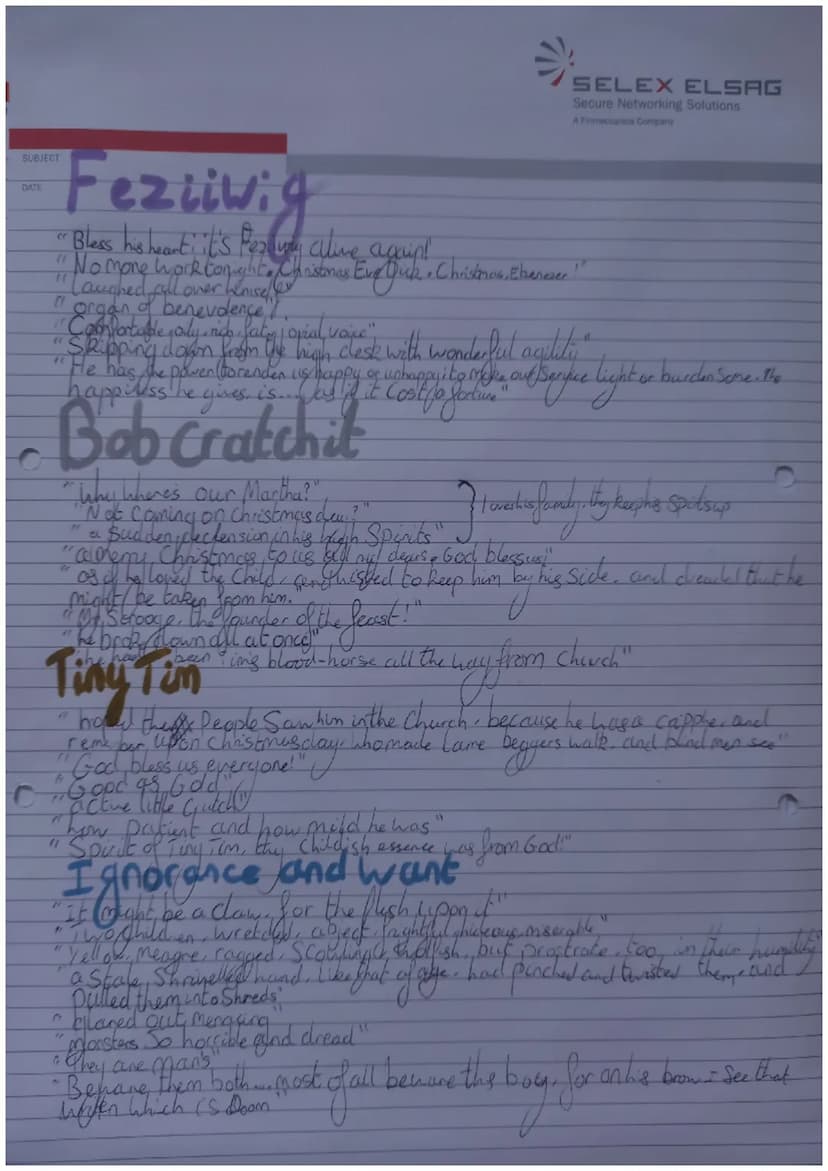 SELEX ELSAG
Secure Networking Solutions
A Finmeccanica Company
SUBJECT
DATE
Feziiwig
"Bless his heart; it's Fezziwig alive again!
"No more work tonight. Christmas Eve Dick. Christmas, Ebenezer!"
"Laughed all over himself
"organ of benevolence".
"Comfortable, oily, rich, fat, jovial, voice"
"Skipping down from the high desk with wonderful agility"
"He has the power to render us happy or unhappy; to make our service light or burdensome. The
happiness he gives, is... as if it cost a fortune"
Bob Cratchit
"Why Where's our Martha?"
"Not coming on Christmas day?"
Loves his family, they keep his spirits up
"a sudden declension in his high Spirits"
"a merry Christmas to us all my dears. God bless us!"
"as if he loved the child, and wished to keep him by his side, and dreaded that he
might be taken from him."
"Mr Scrooge, the founder of the feast!"
"he broke down all at once"
"he had been Tim's blood-horse all the way from Church"
Tiny Tim
"hoped the People Saw him in the Church, because he was a cripple, and
remember upon christmas day, who made lame beggers walk, and blind men see"
"God bless us everyone!"
"Good as Gold"
"active little crutch"
"how patient and how mild he was"
"Spirit of Tiny Tim, thy childish essence was from God!"
Ignorance and want
"it might be a claw, for the flesh upon it"
"Two children, wretched, abject, frightful, hideous, miserable"
"Yellow, meagre, ragged, Scowling, wolfish, but prostrate, too, in their humility"
"a Stale, Shrivelled hand, like that of age, had pinched and twisted them, and
Pulled them into Shreds"
"glared out menacing"
"monsters so horrible and dread"
"They are Man's"
"Beware them both... most of all beware the boy, for on his brow I see that
written which is Doom"